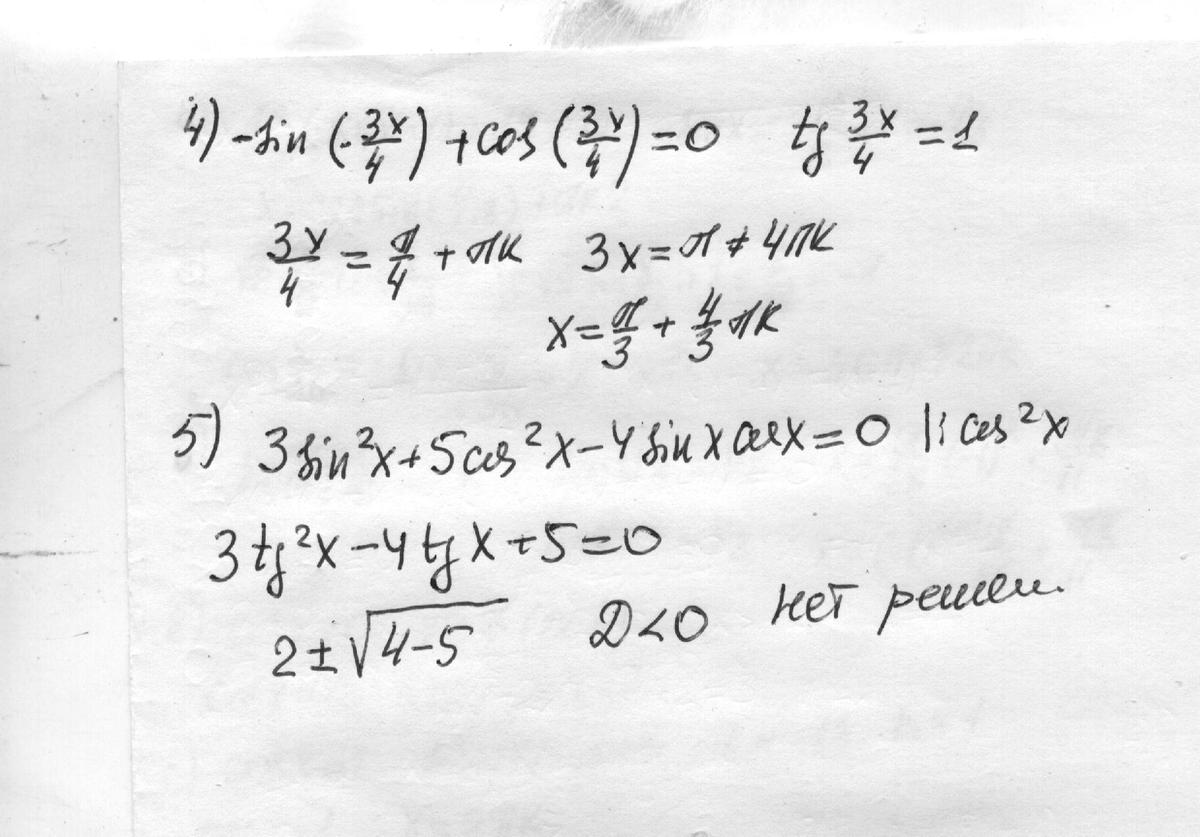 4) -sin (-3x/4) + cos (3x/4) = 0 tg 3x/4 = 1
3x/4 = π/4 + πk 3x = π + 4πk
x = π/3 + 4/3 πk
5) 3 sin²x + 5 cos²x - 4 sin x cos x = 0 |: cos²x
3 tg²x - 4 tg x + 5 = 0
2 ± √4-5 D < 0 нет решен.